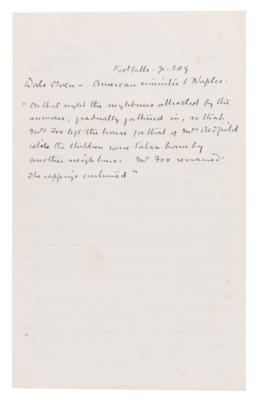 Footfalls. p. 209
Dale Owen – American minister to Naples.
"On that night the neighbours attracted by the
rumours, gradually gathered in, so that
Mrs Fox left the house for that of Mrs Redfield
while the children were taken home by
another neighbour. Mr Fox remained.
The rappings continued"